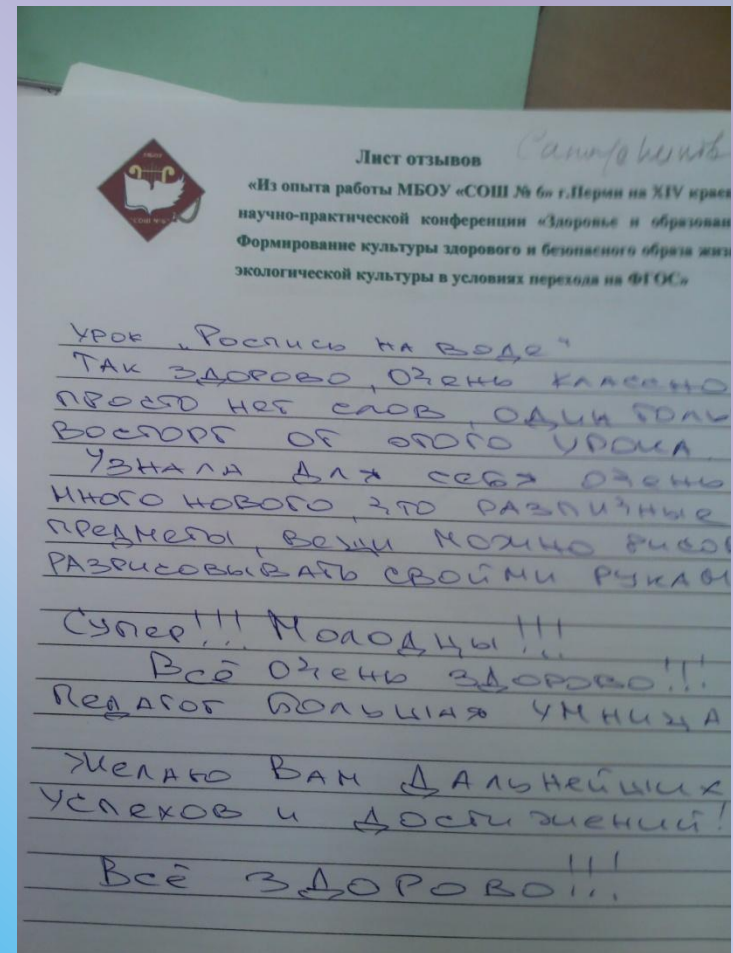 Лист отзывов
«Из опыта работы МБОУ «СОШ № 6» г.Перми на XIV крае
научно-практической конференции «Здоровье и образован
Формирование культуры здорового и безопасного образа жиз
экологической культуры в условиях перехода на ФГОС»
МБОУ
"СОШ № 6"
УРОК „Роспись на воде"
ТАК ЗДОРОВО, ОЧЕНЬ КЛАССНО
ПРОСТО НЕТ СЛОВ, ОДИН ТОЛЬ
ВОСТОРГ ОТ ЭТОГО УРОКА.
УЗНАЛА ДЛЯ СЕБЯ ОЧЕНЬ
МНОГО НОВОГО, ЧТО РАЗЛИЧНЫЕ
ПРЕДМЕТЫ, ВЕЩИ МОЖНО РИСОВ
РАЗРИСОВЫВАТЬ СВОЙМИ РУКАМ
Супер!!! Молодцы!!!
Всё ОЧЕНЬ ЗДОРОВО!!!
Педагог БОЛЬШАЯ УМНИЦА
Желаю Вам Дальнейших
Успехов и Достижений!
Всё ЗДОРОВО!!!